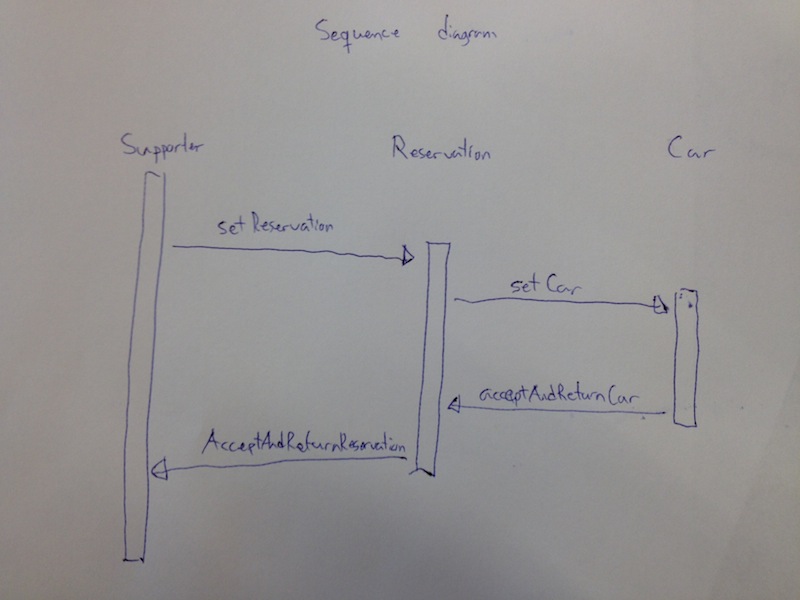 Sequence diagram
Supporter Reservation Car
setReservation
setCar
acceptAndReturnCar
AcceptAndReturnReservation